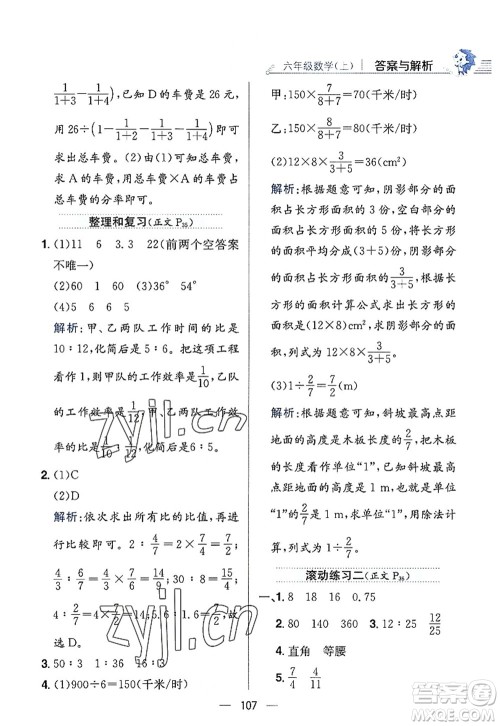 六年级数学(上) 答案与解析
1/(1+3) - 1/(1+4)。已知 D 的车费是 26 元，
用 26÷(1 - 1/(1+1) - 1/(1+3) - 1/(1+4))即可
求出总车费。(2)用(1)求出的
总车费，求 A 的车费用总车费×A 占
总车费的分率即可。
整理和复习(正文 P35)
1. (1)11 6 3.3 22(前两个空答案
不唯一)
(2)60 1 60 (3)36° 54°
(4)5 6 5
解析:甲、乙两队工作时间的比是
10∶12,化简后是 5∶6。把这项工程
看作 1,则甲队的工作效率是 1/10,乙队
的工作效率是 1/12,甲、乙两队的工作效
率的比是 1/10∶1/12,化简后是 6∶5。
2. (1)C
(2)D
解析:依次求出所有的比的比值,再与
2/3 进行比较即可。4∶2=2≠2/3,
4/3∶1/6=8≠2/3,6∶4=3/2≠2/3,
4∶2/7=14≠2/3,10∶15=2/3,故
选 D。
3. 50∶3 3∶1 16∶1
4. (1)900÷6=150(千米/时)
甲:150×7/(8+7)=70(千米/时)
乙:150×8/(8+7)=80(千米/时)
(2)12×8×3/(3+5)=36(cm²)
解析:根据题意可知,阴影部分的面
积占长方形面积的 3 份,空白部分的
面积占长方形面积的 5 份,将长方形
的面积平均分成(3+5)份,阴影部分
面积占长方形面积的 3/(3+5),根据长方
形的面积计算公式求出长方形的面
积是(12×8)cm²,求阴影部分的面
积,列式为 12×8×3/(3+5)。
(3)1÷2/7=7/2(m)
解析:根据题意可知,斜坡最高点距
地面的距离是木板长度的 2/7,是把木
板的长度看作单位“1”,斜坡最高点
距地面的距离是 1 m,是单位“1”的
2/7,单位“1”的量未知,用除法计算,列
式为 1÷2/7。
滚动练习二(正文 P36)
一、1. 8 18 16 0.75
2. 20 140 360 3. 6∶25 12 12/25
4. 直角 等腰
5. 7/4 4/11
107